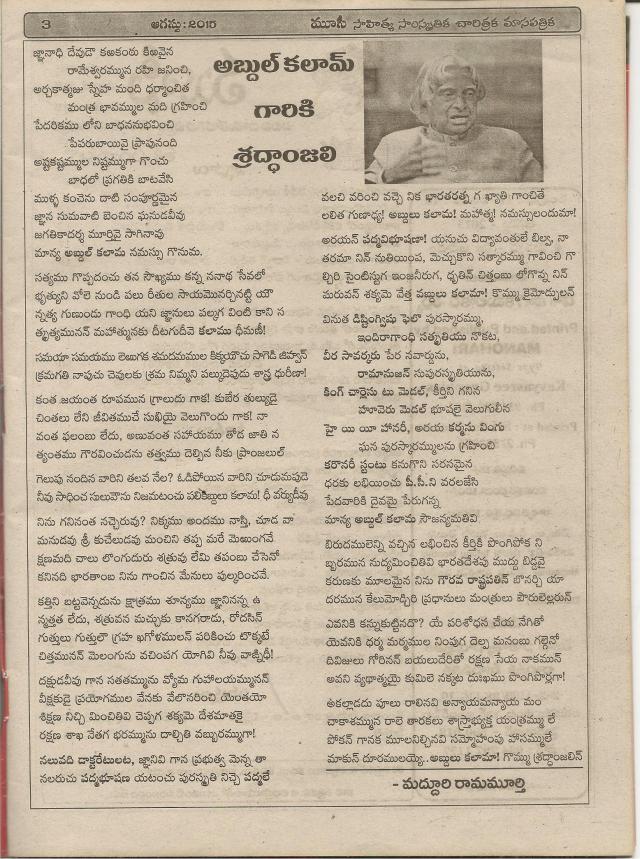 3 ఆగస్టు:2015 మూసీ సాహిత్య సాంస్కృతిక చారిత్రక మాసపత్రిక
అబ్దుల్ కలామ్
గారికి
శ్రద్ధాంజలి
జ్ఞానాధి దేవుడౌ కఱకంఠు కిఱవైన
రామేశ్వరమ్మున రహి జనించి,
అర్చకాత్మజు స్నేహ మంది ధర్మాంచిత
మంత్ర భావమ్ముల మది గ్రహించి
పేదరికము లోని బాధననుభవించి
పేపరుబాయివై ప్రాపునంది
అష్టకష్టమ్ముల నిష్టమ్ముగా గొంచు
బాధలో ప్రగతికి బాటవేసి
ముళ్ళ కంచెను దాటి సంపూర్ణమైన
జ్ఞాన సుమవాటి బెంచిన ఘనుడవీవు
జగతికాదర్శ మూర్తివై సాగినావు
మాన్య అబ్దుల్ కలామ నమస్సు గొనుమ.
సత్యము గొప్పదంచు తన సౌఖ్యము కన్న ననాథ సేవలో
భృత్యుని వోలె నుండి పలు రీతుల సాయమొనర్చినట్టి యౌ
న్నత్య గుణుండు గాంధి యని జ్ఞానులు పల్కుగ వింటి కాని స
త్కృత్యమునన్ మహాత్మునకు దీటగుదీవె కలాము ధీమణీ!
సమయా సమయము లెఱుగక శమదమముల కిక్కయౌచు సాగెడి జిహ్వన్
క్రమగతి నాపుచు చెవులకు శ్రమ నిమ్మని పల్కుదెపుడు శాస్త్ర ధురీణా!
కంత జయంత రూపమున గ్రాలుదు గాక! కుబేర తుల్యుడై
చింతలు లేని జీవితముచే సుఖియై వెలుగొందు గాక! నా
వంత ఫలంబు లేదు, అణువంత సహాయము తోడ జాతి న
త్యంతము గొరవించుడను తత్త్వము దెల్పిన నీకు ప్రాంజలుల్
గెలుపు నందిన వారిని తలవ నేల? ఓడిపోయిన వారిని చూడుమపుడె
నీవు సాధించ సులువౌను నిజమటంచు పలికిబ్దులు కలామ! ధీ వర్యుడీవు
నిను గనినంత నచ్చెరువు? నిక్యము అందము నాస్తి, చూడ వా
మనుడవు శ్రీ కుచేలుడవు మంచిని తప్ప మరే మెఱుంగవే
క్షణమది చాలు లొంగుదురు శత్రువు లేమి తపంబు చేసెనో
కనినది భారతాంబ నిను గాంచిన మేనులు పుల్కరించవే.
కత్తిని బట్టవెన్నడును క్షాత్రము శూన్యము జ్ఞాననన్న ఉ
న్మత్తత లేదు, శత్రువన మచ్చుకు కానగరాదు, రోదసిన్
గుత్తులు గుత్తులౌ గ్రహ ఖగోళములన్ పరికించు టొక్కటే
చిత్తమునన్ మెలంగును వచింపగ యోగివి నీవు వాన్నిధీ!
దక్షుడవీవు గాన సతతమ్మును వ్యోమ గుహాలయమ్మునన్
వీక్షకుడై ప్రయోగముల వేనకు వేలొనరించి యెంతయో
శిక్షణ నిచ్చి మించితివి చెప్పగ శక్యమె దేశమాతకై
రక్షణ శాఖ నేతగ భరమ్మును దాల్చితి వబ్బురమ్ముగా!
నలువది డాక్టరేటులట, జ్ఞానివి గాన ప్రభుత్వ మెన్న తా
నలరుచు పద్మభూషణ యటంచు పురస్కృతి నిచ్చె పద్మలే
వలచి వరించి వచ్చె నిక భారతరత్న గ ఖ్యాతి గాంచితే
లలిత గుణాఢ్య! అబ్బులు కలామ! మహాత్మ! నమస్సులందుమా!
అరయన్ పద్మవిభూషణా! యనుచు విద్యావంతులే బిల్వ, నా
తరమా నిన్ నుతియింప, మెచ్చుకొని సత్కారమ్ము గావించి గొ
ల్చిరి సైంటిస్టుగ ఇంజనీరుగ, ధృతిన్ చిత్తంబు లోగొన్న నిన్
మరువన్ శక్యమె వేత్త వబ్బులు కలామా! కొమ్ము కైమోడ్పులన్
వినుత డిస్టింగ్విషు ఫెలో పురస్కారమ్ము,
ఇందిరాగాంధి సత్కృతియు నొకట,
వీర సావర్కరు పేర నవార్డును,
రామానుజన్ సుపురస్కృతియును,
కింగ్ చార్లెసు టు మెడల్, కీర్తిని గనిన
హూవెరు మెడల్ భూషలై వెలుగులీన
హై యి యీ హానరీ, అరయ కర్మను వింగు
ఘన పురస్కారమ్ములను గ్రహించి
కఠొనరీ స్టంటు కనుగొని సరసనమైన
ధరకు లభియించు పీ.సీ.ని వరలజేసి
పేదవారికి దైవమై పేరుగన్న
మాన్య అబ్దుల్ కలామ సౌజన్యమతివి
బిరుదములెన్ని వచ్చిన లభించిన కీర్తికి పొంగిపోక ని
బ్బరమున నుద్యమించితివి భారతదేశపు ముద్దు బిడ్డవై
కరుణకు మూలమైన నిను గౌరవ రాష్ట్రపతిన్ బొనర్చి యా
దరమున కేలుమోడ్చిరి ప్రధానులు మంత్రులు పౌరులెల్లరున్
ఎవనికి కన్నుకుట్టినదొ? యే పరిశోధన చేయ నేగితో
యెవనికి ధర్మ మర్మముల నింపుగ దెల్ప మనంబు గల్గెనో
దివిజులు గోరినన్ బయలుదేరితో రక్షణ సేయ నాకమున్
అవని వ్యథాత్మయై కుమిలె నక్కట దుఃఖము పొంగిపొర్లగా!
ఉకల్గాదడు పూలు రాలినవి అన్యాయమన్యాయ మం
చాకాశమ్మున రాలె తారకలు శాస్త్రాభ్యక్త యంత్రమ్ము లే
పోకన్ గానక మూలనిల్చినవి సమ్మోహంపు హాసమ్ములే
మాకున్ దూరములయ్యె..అబ్దులు కలామా! గొమ్ము శ్రద్ధాంజలిన్
- మద్దూరి రామమూర్తి